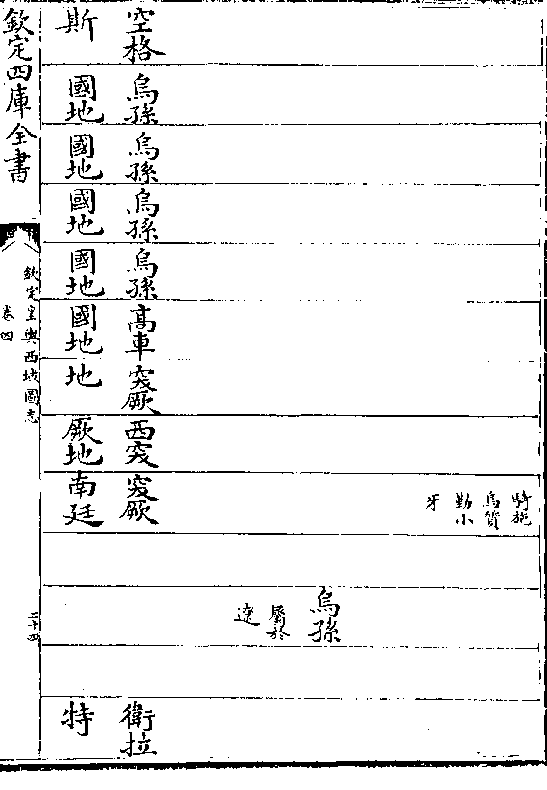 騎施
烏質
勒小
牙
空格
斯
烏孫
國地
烏孫
國地
烏孫
國地
烏孫
國地
高車
國地
突厥
地
西突
厥地
突厥
南廷
烏孫
屬於
遼
衛拉
特
欽定四庫全書
欽定皇輿西域圖志
卷四
二十四